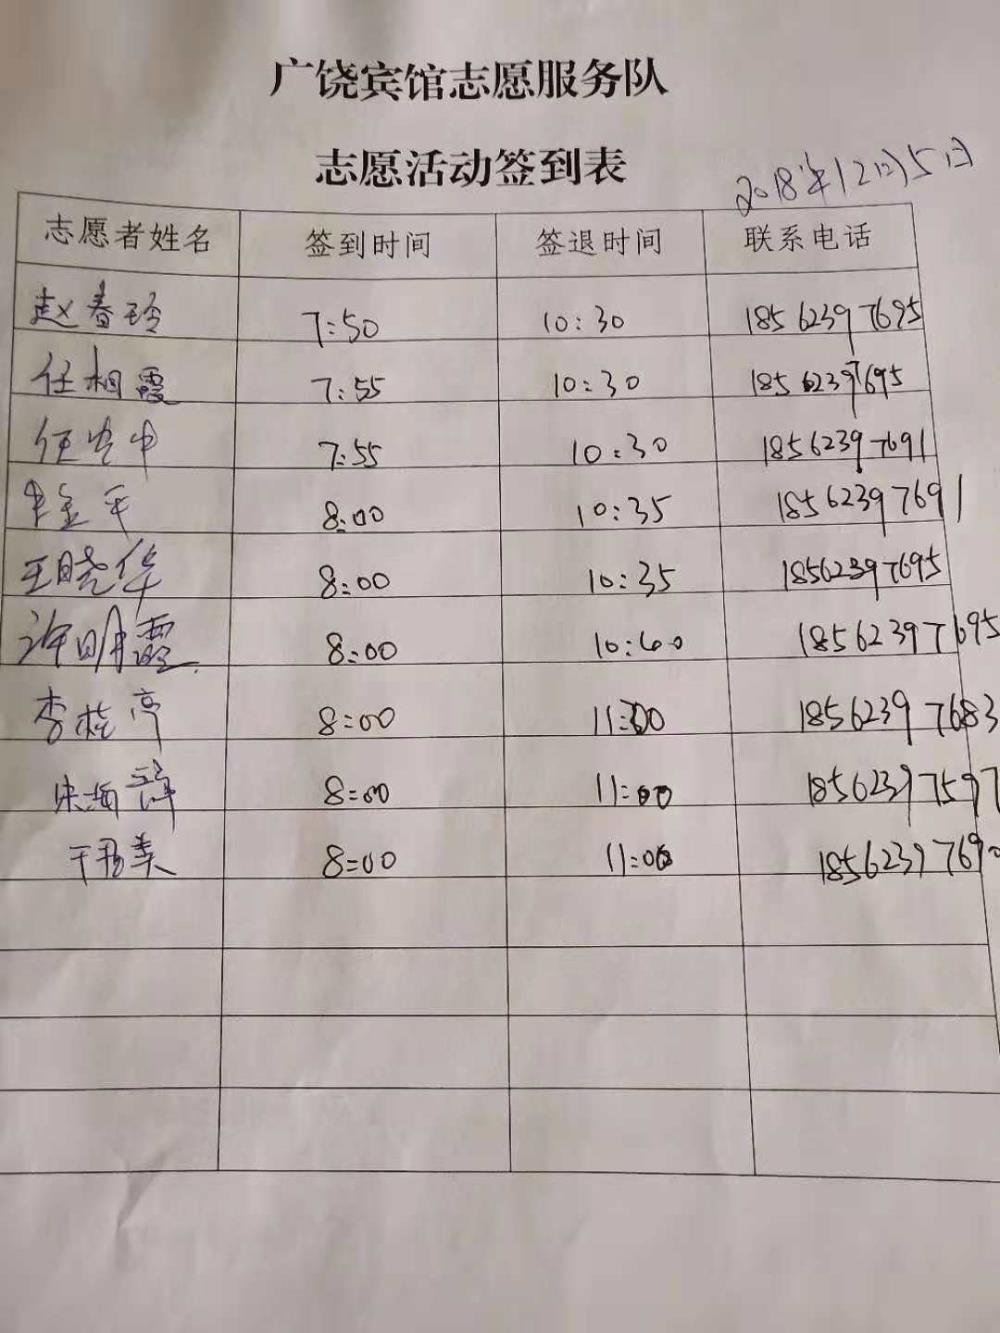 广饶宾馆志愿服务队
志愿活动签到表
2018年12月5日
志愿者姓名 签到时间 签退时间 联系电话
赵春玲 7:50 10:30 18562397695
任相霞 7:55 10:30 18562397695
任 7:55 10:30 18562397691
金平 8:00 10:35 18562397691
王晓华 8:00 10:35 18562397695
许明霞 8:00 10:40 18562397695
李桂亭 8:00 11:00 18562397683
8:00 11:00 18562397597
8:00 11:00 1856239769